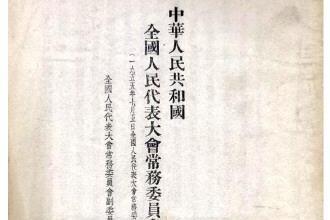 中華人民共和國
全國人民代表大會常務委員
(一九五五年七月五日全國人民代表大會常務委
全國人民代表大會常務委員會副委員